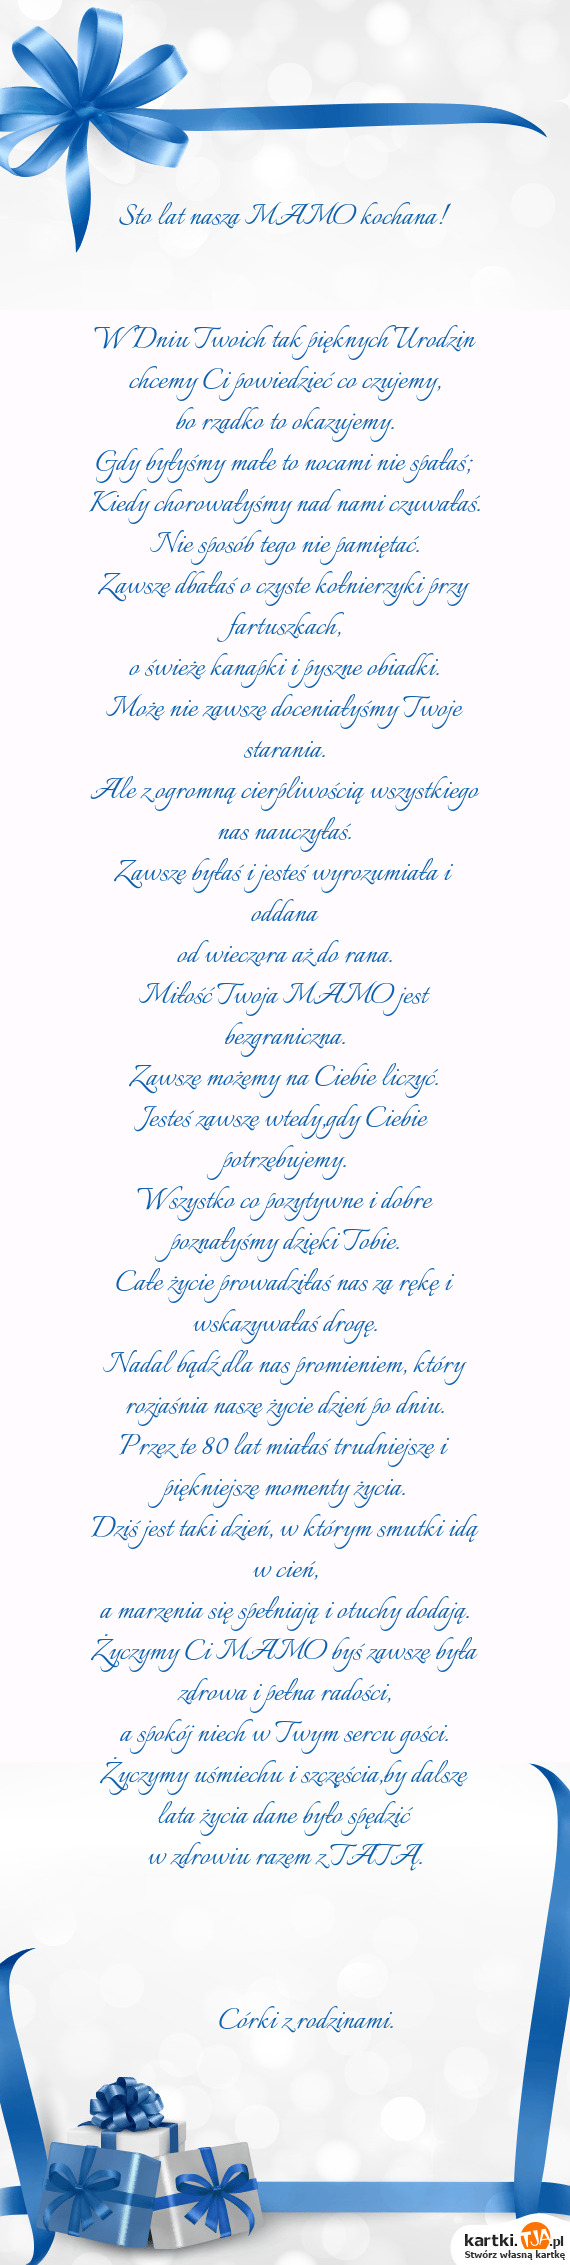 Sto lat nasza MAMO kochana!
W Dniu Twoich tak pięknych Urodzin
chcemy Ci powiedzieć co czujemy,
bo rzadko to okazujemy.
Gdy byłyśmy małe to nocami nie spałaś;
Kiedy chorowałyśmy nad nami czuwałaś.
Nie sposób tego nie pamiętać.
Zawsze dbałaś o czyste kołnierzyki przy
fartuszkach,
o świeże kanapki i pyszne obiadki.
Może nie zawsze doceniałyśmy Twoje
starania.
Ale z ogromną cierpliwością wszystkiego
nas nauczyłaś.
Zawsze byłaś i jesteś wyrozumiała i
oddana
od wieczora aż do rana.
Miłość Twoja MAMO jest
bezgraniczna.
Zawsze możemy na Ciebie liczyć.
Jesteś zawsze wtedy,gdy Ciebie
potrzebujemy.
Wszystko co pozytywne i dobre
poznałyśmy dzięki Tobie.
Całe życie prowadziłaś nas za rękę i
wskazywałaś drogę.
Nadal bądź dla nas promieniem, który
rozjaśnia nasze życie dzień po dniu.
Przez te 80 lat miałaś trudniejsze i
piękniejsze momenty życia.
Dziś jest taki dzień, w którym smutki idą
w cień,
a marzenia się spełniają i otuchy dodają.
Życzymy Ci MAMO byś zawsze była
zdrowa i pełna radości,
a spokój niech w Twym sercu gości.
Życzymy uśmiechu i szczęścia,by dalsze
lata życia dane było spędzić
w zdrowiu razem z TATĄ.
Córki z rodzinami.
kartki.TJA.pl
Stwórz własną kartkę